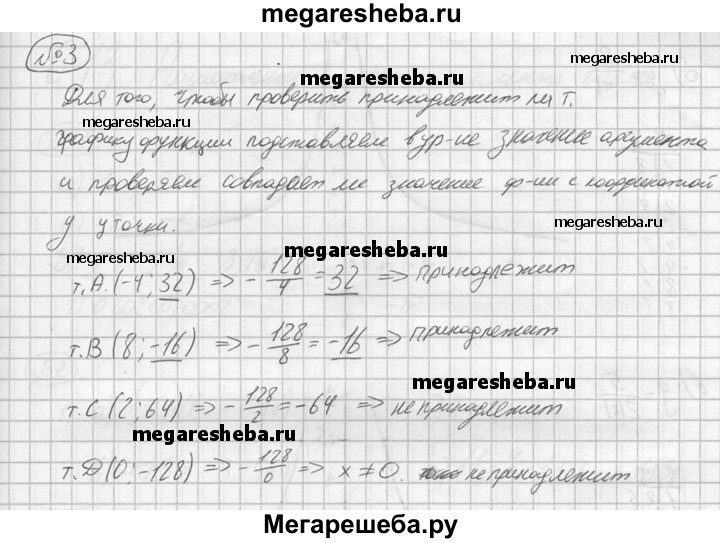 megaresheba.ru
№3
megaresheba.ru
megaresheba.ru
Для того, чтобы проверить принадлежит ли т.
megaresheba.ru
графику функции подставляем в ур-ие значение аргумента
и проверяем совпадает ли значение ф-ии с координатой
y у точки.
megaresheba.ru
megaresheba.ru
т.А.(-4; 32) => - 128/4 = 32 => принадлежит
т.В (8; -16) => - 128/8 = -16 => принадлежит
megaresheba.ru
megaresheba.ru
т.С (2; 64) => - 128/2 = -64 => не принадлежит
megaresheba.ru
т.D (0; -128) => - 128/0 => x ≠ 0. не принадлежит
Мегарешеба.ру